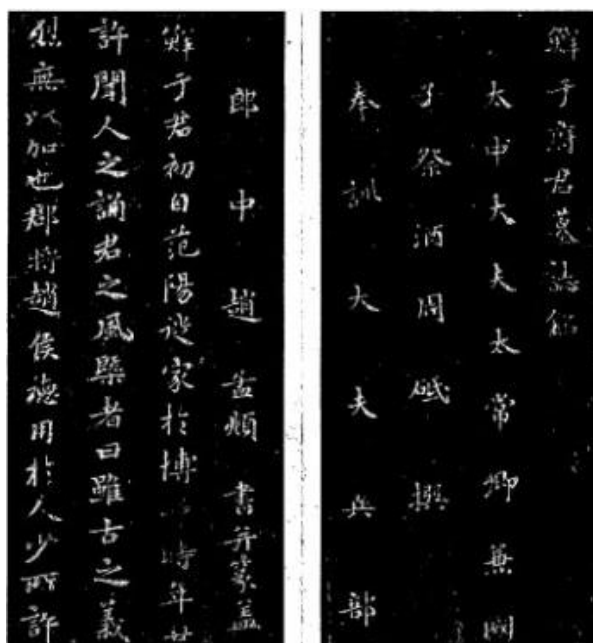 鮮于府君墓誌銘
太中大夫太常卿兼國
子祭酒周砥撰
奉訓大夫兵部
郎中趙孟頫書并篆蓋
鮮于君初自范陽徙家於博時年廿
許聞人之誦君之風槩者曰雖古之義
烈無以加也郡將趙侯德用於人少所許